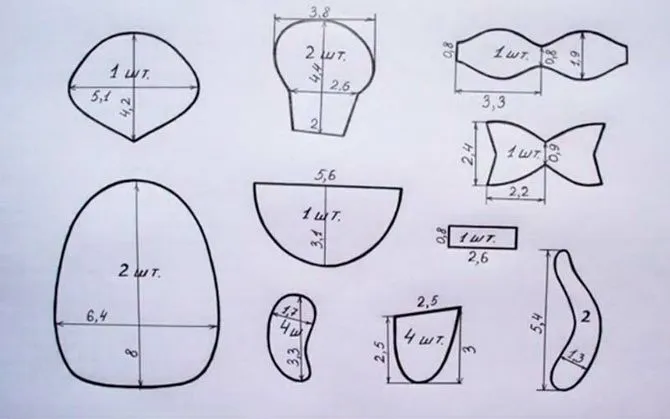 1 шт.
5,1
4,2
3,8
2 шт.
4,4
2,6
2
0,8
1 шт.
0,8
1,9
3,3
2,4
1 шт.
0,9
2,2
2 шт.
6,4
8
5,6
1 шт.
3,1
0,8
1 шт.
2,6
1,7
4 ш
3,3
2,5
2,5
4 шт.
3
5,4
2
1,3